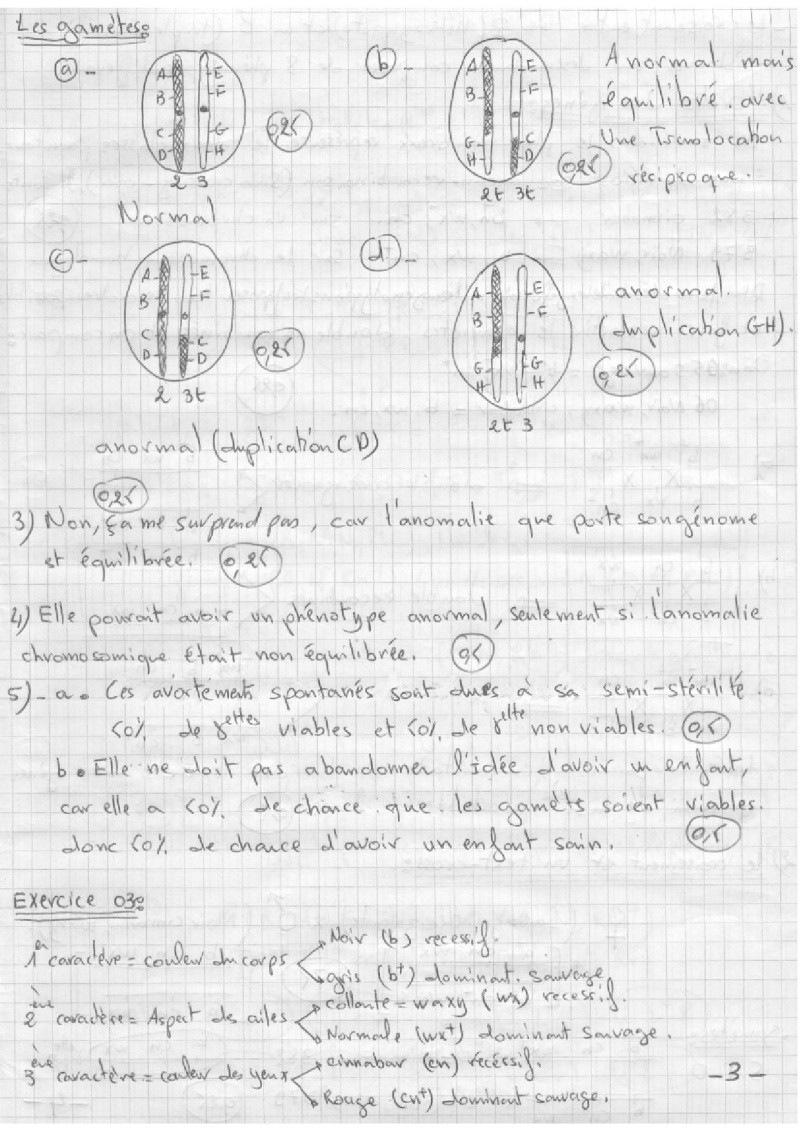 Les gamètes:
a -
A E
B F
C G
D H
2 3
0,25
Normal
b -
A E
B F
G C
H D
2t 3t
0,25
Anormal mais
équilibré. avec
Une Translocation
réciproque.
c -
A E
B F
C C
D D
2 3t
0,25
anormal (duplication CD)
d -
A E
B F
G G
H H
2t 3
anormal.
(duplication GH).
0,25
0,25
3) Non, ça me surprend pas, car l'anomalie que porte son génome
est équilibrée. 0,25
4) Elle pourait avoir un phénotype anormal, seulement si l'anomalie
chromosomique était non équilibrée. 0,5
5) - a • Ces avortements spontanés sont dues à sa semi-stérilité.
50% de γettes viables et 50% de γette non viables. 0,5
b • Elle ne doit pas abandonner l'idée d'avoir un enfant,
car elle a 50% de chance que les gamèts soient viables.
donc 50% de chance d'avoir un enfant sain. 0,5
Exercice 03:
Noir (b) recessif.
1er caractère = couleur du corps
gris (b+) dominant. sauvage
collante = waxy (wx) recessif.
2ème caractère = Aspect des ailes
Normale (wx+) dominant sauvage.
cinnabar (cn) récéssif.
3ème caractère = couleur des yeux
Rouge (cn+) dominant sauvage.
-3-